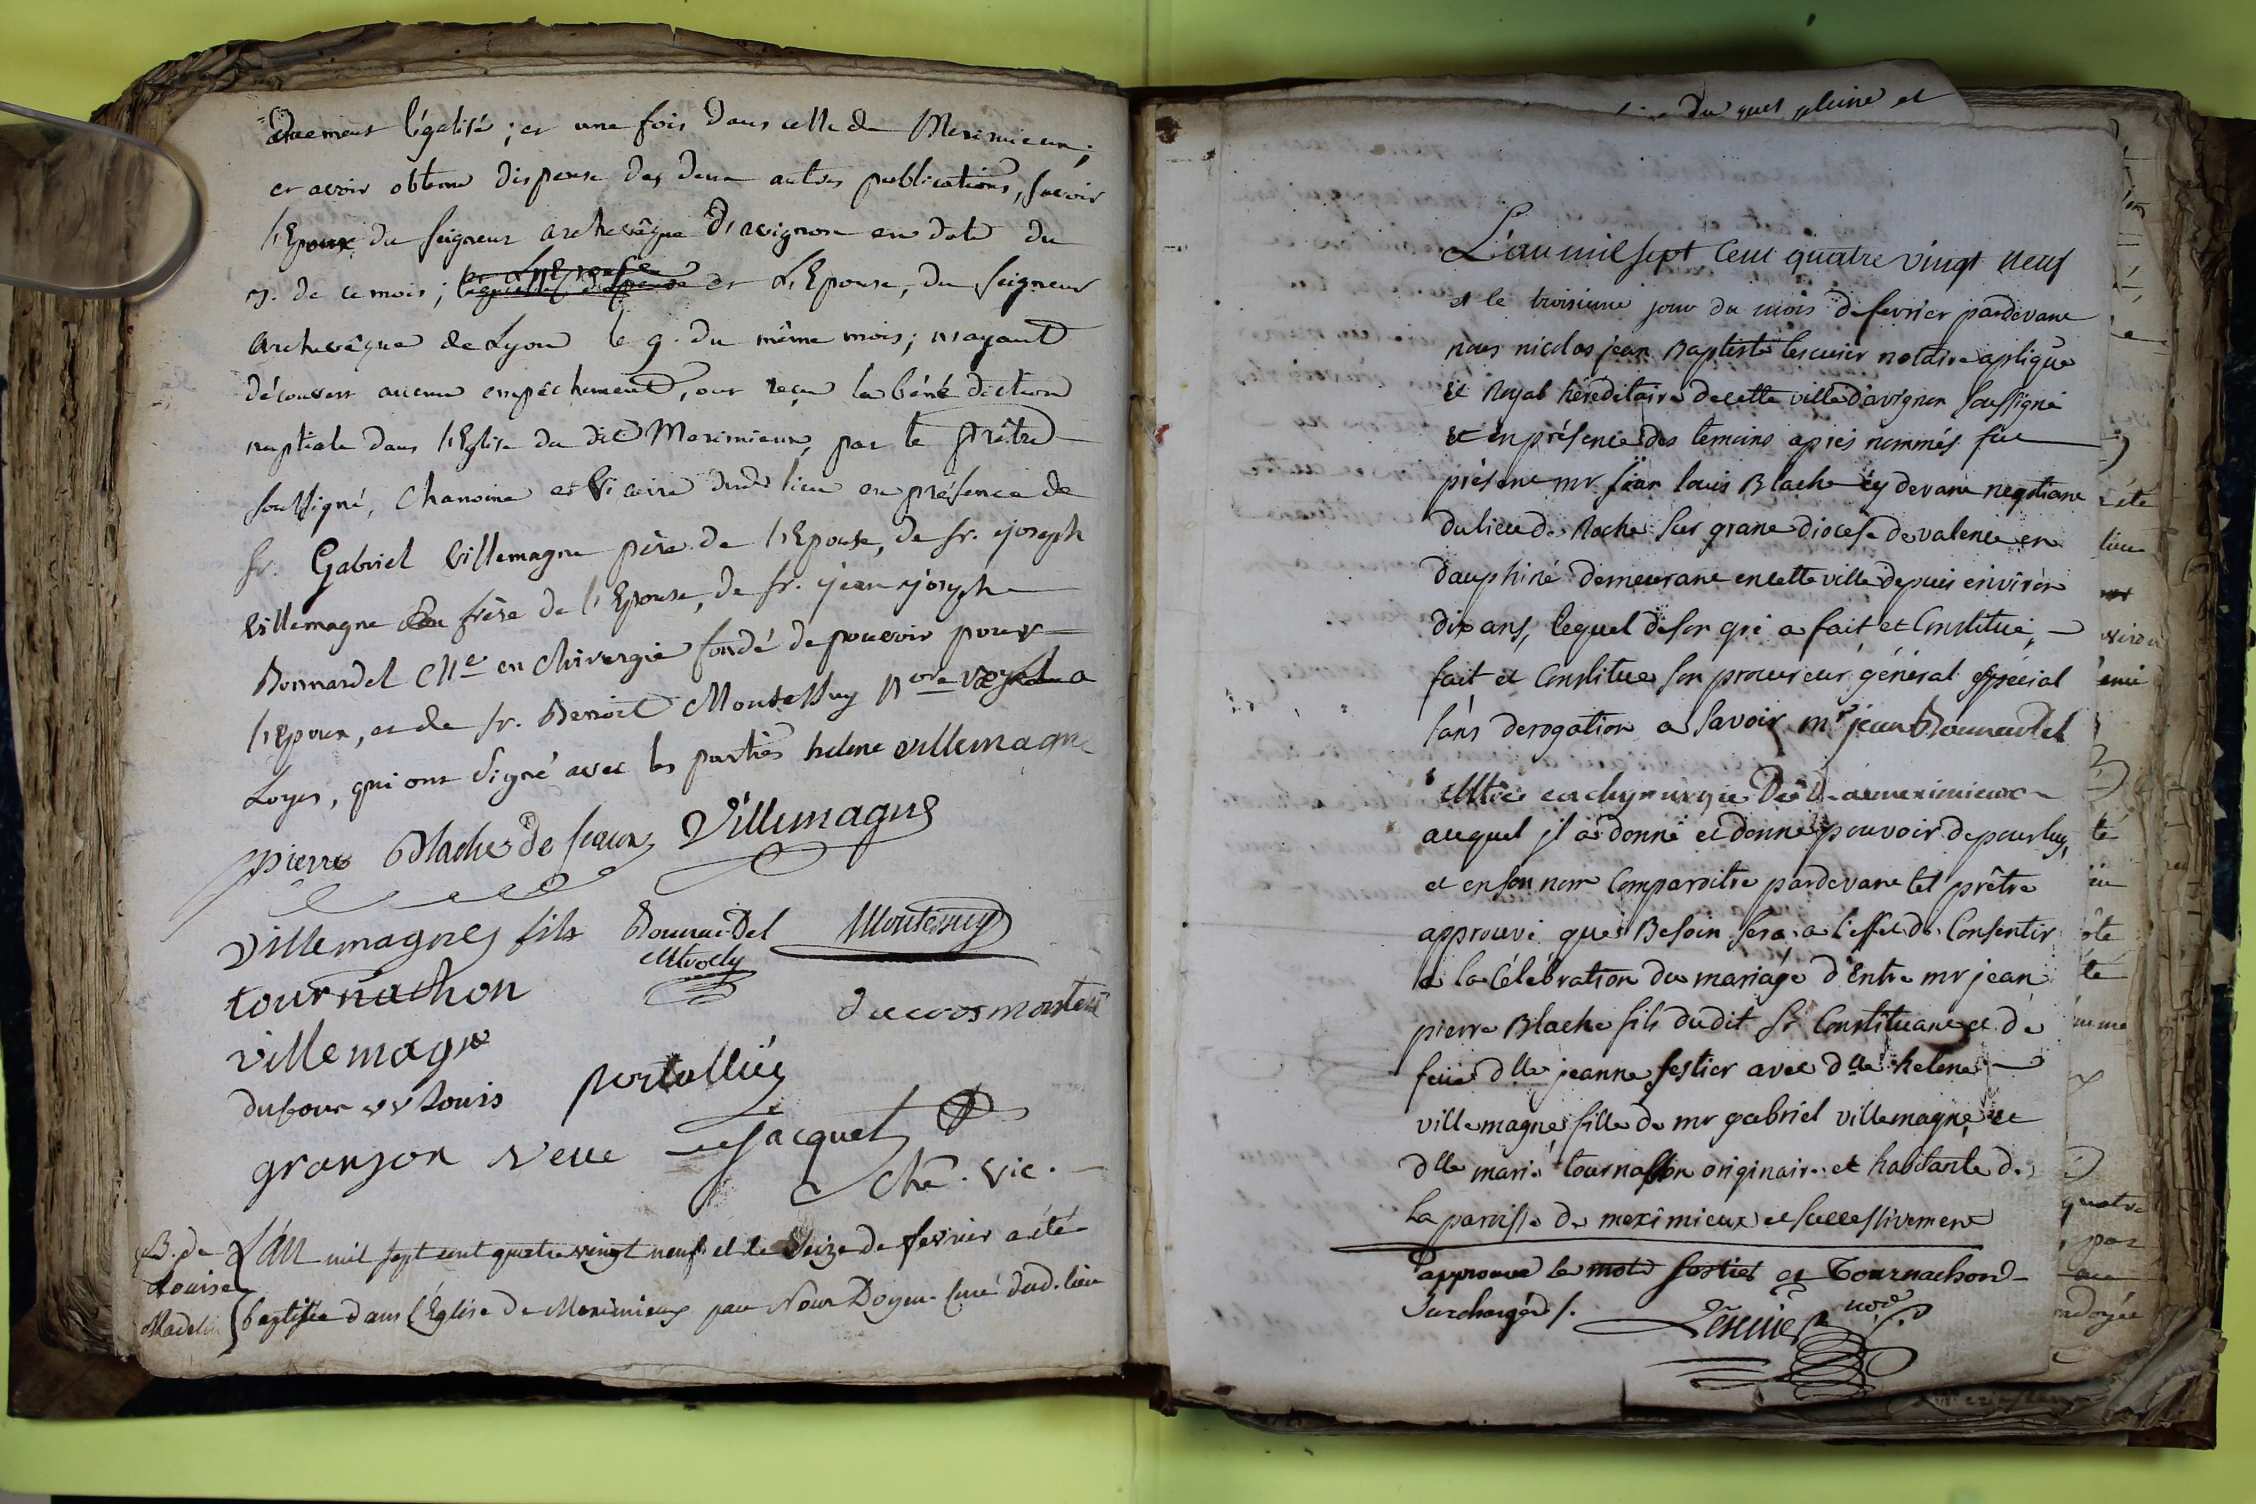 duement légalisé; et une fois dans celle de Meximieux;
et avoir obtenu dispense des deux autres publications, savoir
l'Epoux du seigneur archevêque d'avignon en date du
7. de ce mois; et L'Epouse, du seigneur
archevêque de Lyon le 9. du même mois; n'ayant
découvert aucun empêchement, ont reçu la bénédiction
nuptiale dans l'Eglise du dit Meximieux, par le prêtre
soussigné, chanoine et vicaire dud. lieu en présence de
sr. Gabriel villemagne père de l'Epouse, de sr. joseph
villemagne frère de l'Epouse, de sr. jean joseph
Bonnardel Me en chirurgie fondé de pouvoir pour
l'Epoux, et de sr. Benoit Montessuy
Loyes, qui ont signé avec les parties helene villemagne
pierre Blache de Villemagne
villemagne fils Bonnardel Montessuy
Mtrochy
tournachon ducros
villemagne
dufour vv Louis portallier
granjon veve Jacquet
Che. vic.
B. de Louise Madelin
L'an mil sept cent quatre vingt neuf et le seize de fevrier a été
baptisée dans l'Eglise de Meximieux par Nous Doyen Curé dud. lieu
du quel pleine et
L'an mil sept cent quatre vingt neuf
et le troisieme jour du mois de fevrier pardevant
nous nicolas jean Baptiste lescuier notaire apliqué
et Royal héréditaire de cette ville d'avignon soussigné
et en présence des temoins après nommés fut
présent mr jean louis Blache cy devant negotiant
du lieu de Roche sur grane diocese de valence en
dauphiné demeurant en cette ville depuis environ
dix ans, lequel de son gré a fait et Constitué,
fait et Constitue son procureur général spécial
sans derogation a savoir mr jean Bonnardel
Mtre en chyrurgie a meximieux
auquel jl a donné et donne pouvoir de pour luy,
et en son nom Comparoitre pardevant tel prêtre
approuvé que Besoin sera, a l'effet de Consentir
a la Célébration du mariage d'Entre mr jean
pierre Blache fils dudit sr Constituant et de
feue dlle jeanne festier avec dlle helene
villemagne, fille de mr gabriel villemagne, et
dlle marie tournachon originaire et habitante de
la paroisse de meximieux et successivement
approuvé le mots festier et Tournachon
surchargés /. Lescuier note